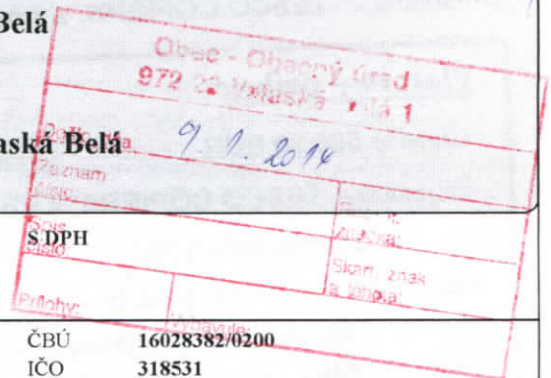 Belá
Obec - Obecný úrad
972 Valaská Belá 1
aská Belá
Došlo dňa
9. 1. 2014
Záznam
číslo:
Spis
číslo
značka:
S DPH
Skart. znak
a lehota:
Prílohy:
Vybavuje:
ČBÚ 16028382/0200
IČO 318531